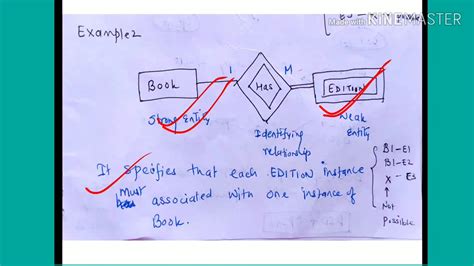 Made with KINEMASTER
Example2
1 M
Book Has EDITION
Strong Entity Weak
Entity
Identifying
relationship
It specifies that each EDITION instance
must
associated with one instance of
Book.
B1-E1
B1-E2
X-E3
↑
Not
possible